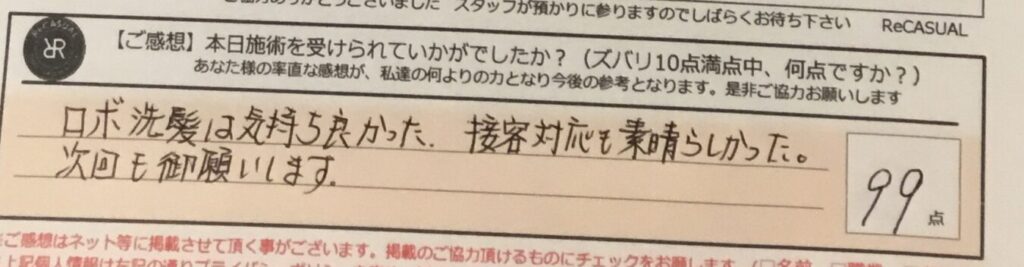 ご協力ありがとうございました スタッフが預かりに参りますのでしばらくお待ち下さい ReCASUAL
【ご感想】本日施術を受けられていかがでしたか？（ズバリ10点満点中、何点ですか？）
あなた様の率直な感想が、私達の何よりの力となり今後の参考となります。是非ご協力お願いします
ロボ洗髪は気持ち良かった、接客対応も素晴らしかった。
次回も御願いします。
99点
ご感想はネット等に掲載させて頂く事がございます。掲載のご協力頂けるものにチェックをお願します。(□名前
上記個人情報は左記の通りプライバシーポリシー